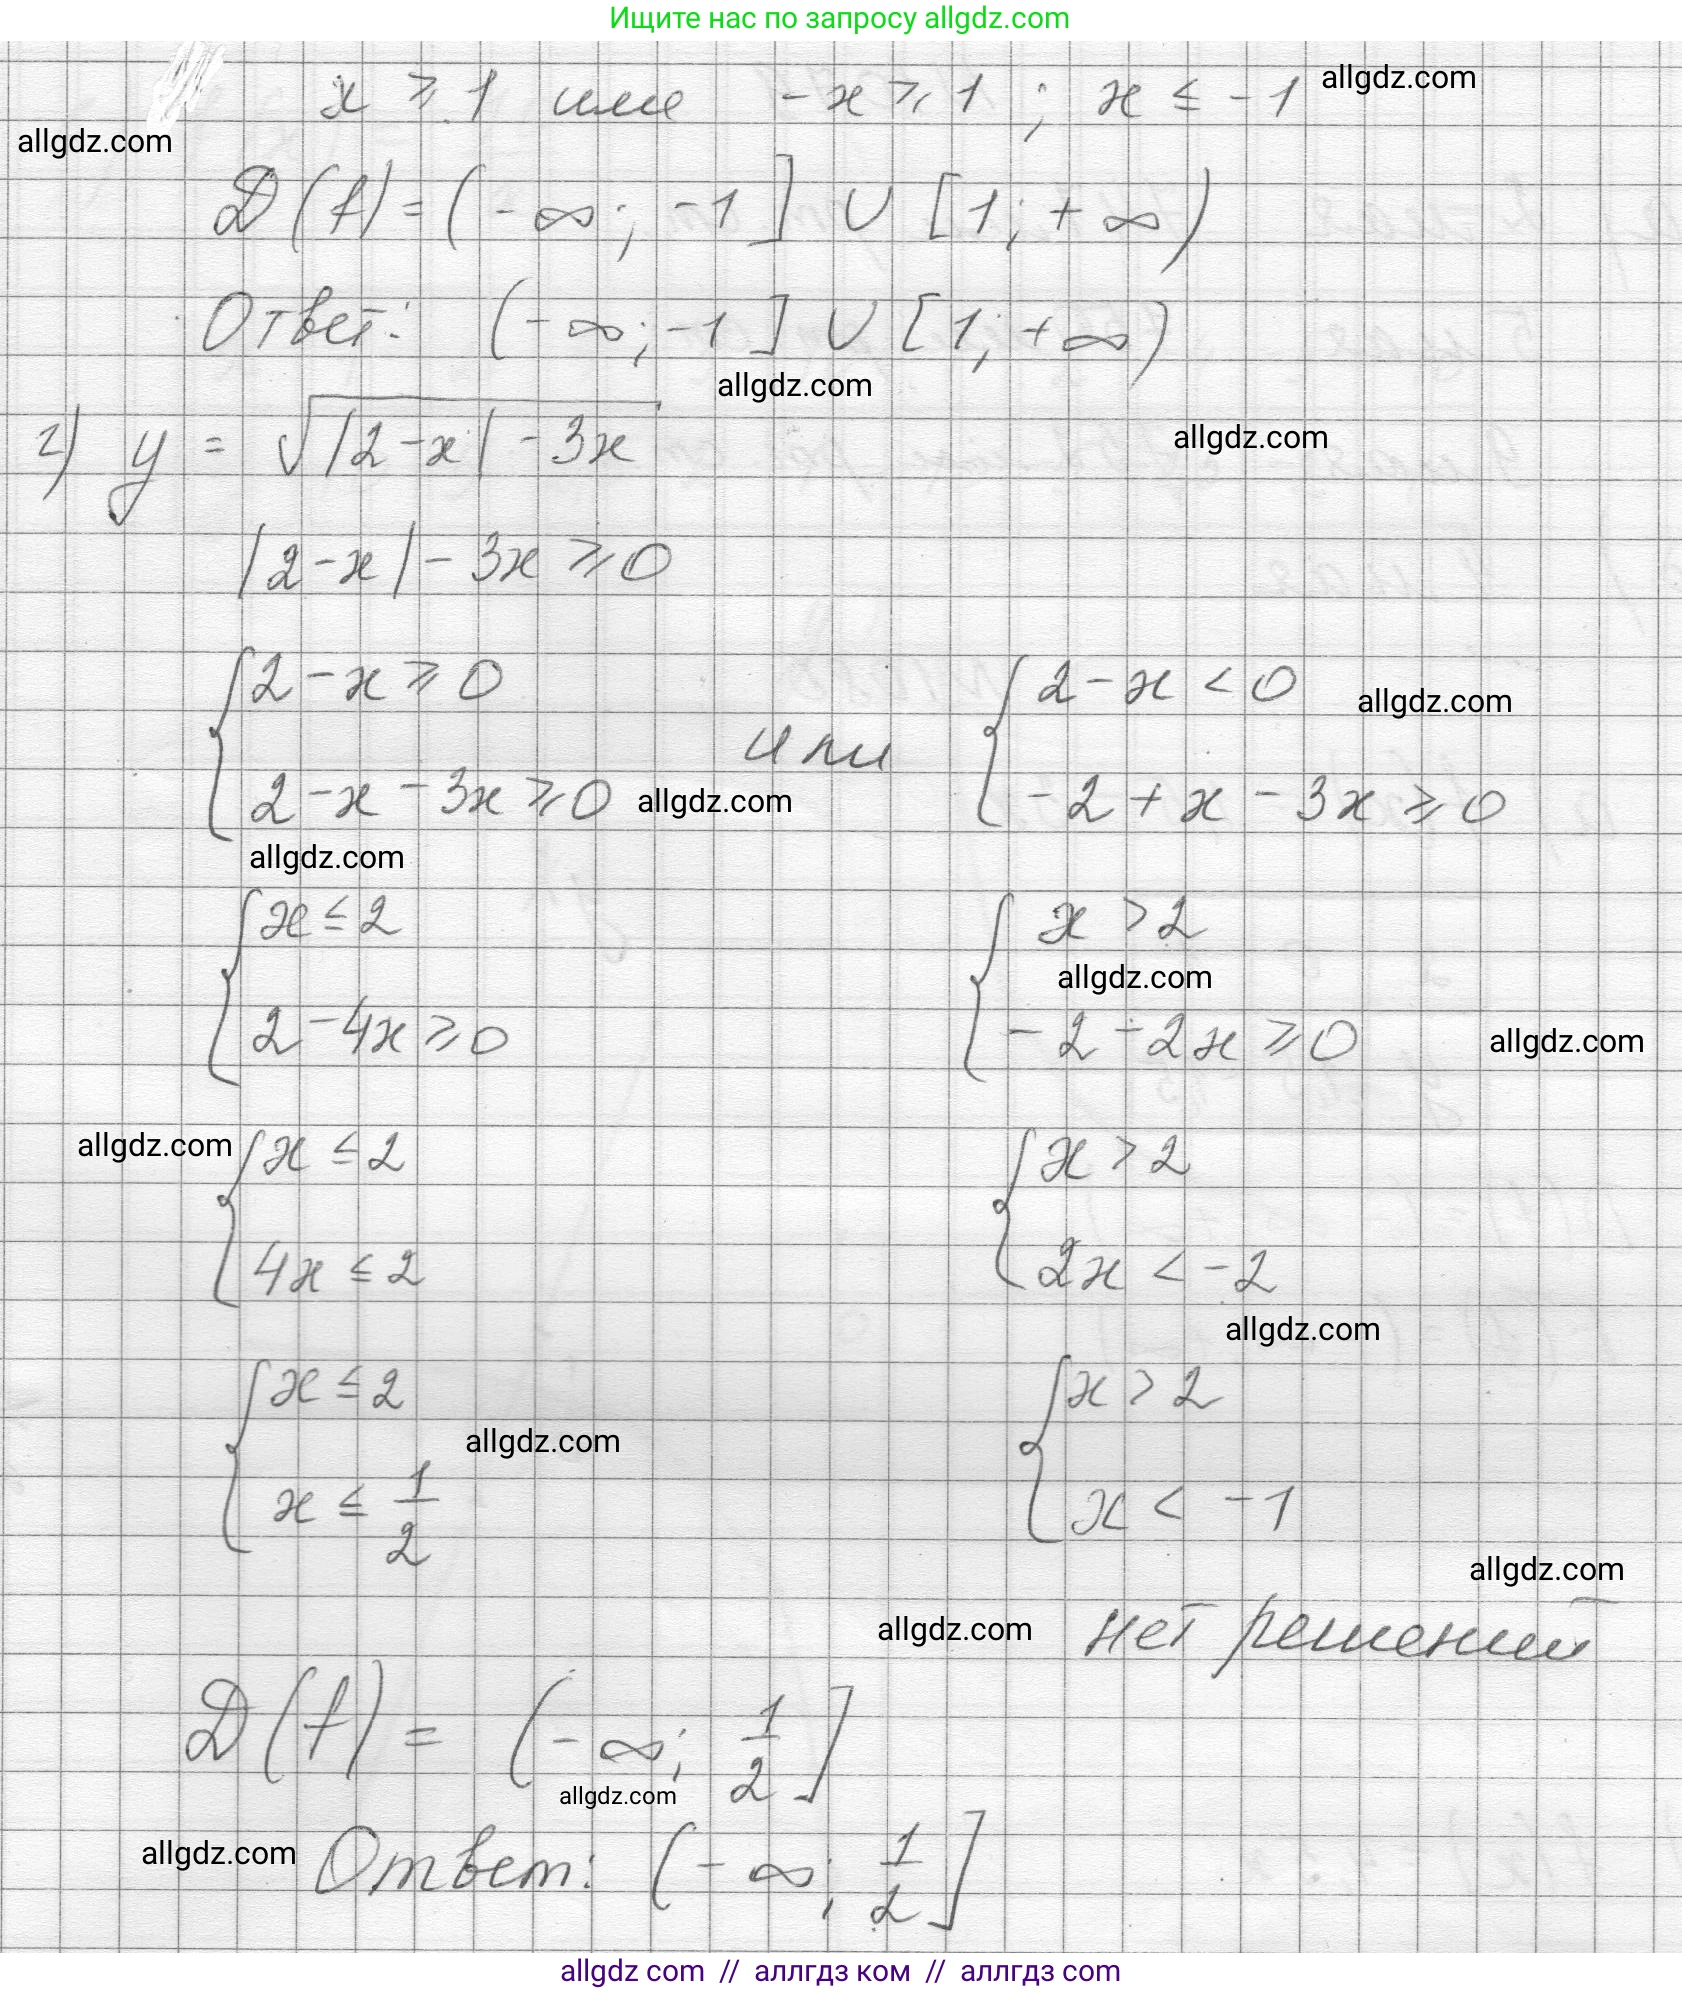 Ищите нас по запросу allgdz.com
x ⩾ 1 или -x ⩾ 1 ; x ≤ -1
allgdz.com
allgdz.com
D(f) = (-∞; -1] ∪ [1; +∞)
Ответ: (-∞; -1] ∪ [1; +∞)
allgdz.com
г) y = √|2-x| - 3x
allgdz.com
|2-x| - 3x ⩾ 0
{ 2-x ⩾ 0 { 2-x < 0
allgdz.com
или
2-x-3x ⩾ 0 -2+x-3x ⩾ 0
allgdz.com
allgdz.com
{ x ≤ 2 { x > 2
allgdz.com
2-4x ⩾ 0 -2-2x ⩾ 0
allgdz.com
allgdz.com
{ x ≤ 2 { x > 2
4x ≤ 2 2x < -2
allgdz.com
{ x ≤ 2 { x > 2
allgdz.com
x ≤ 1/2 x < -1
allgdz.com
allgdz.com
нет решений
D(f) = (-∞; 1/2]
allgdz.com
allgdz.com
Ответ: (-∞; 1/2]
allgdz com // аллгдз ком // аллгдз com